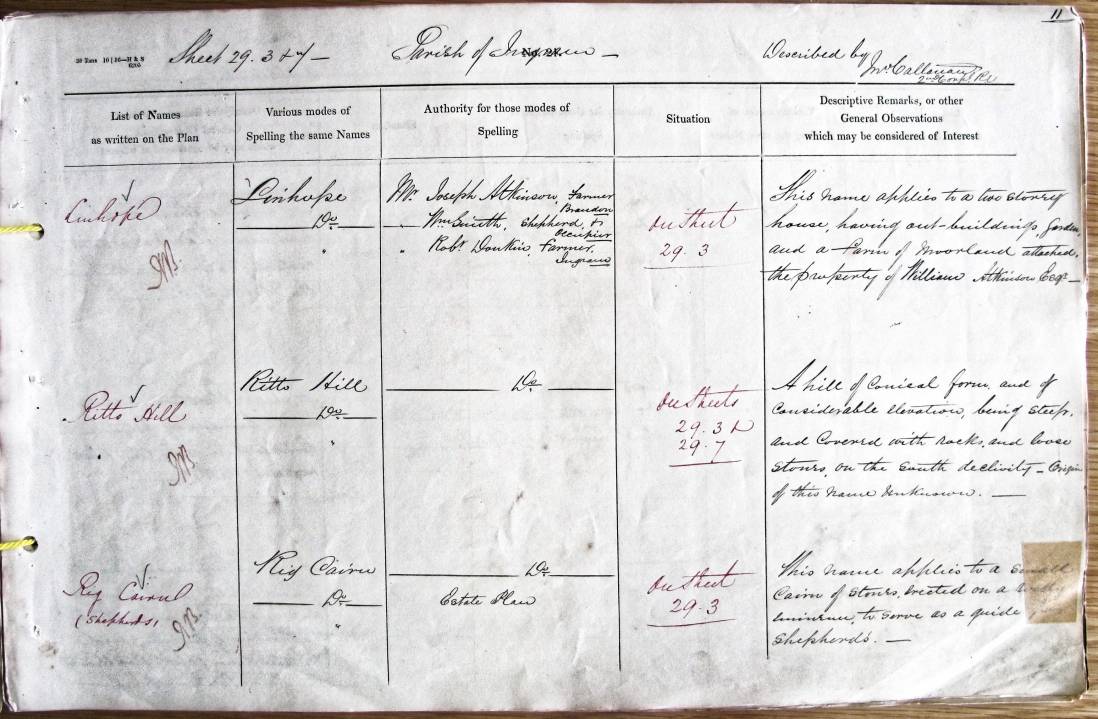 11
20 Tons 10|56—H & S
Sheet 29. 3 & 7 — Parish of Ingram — Described by
No. 24.
Jno. Callanan
2nd Corpl. RE
List of Names
as written on the Plan
Various modes of
Spelling the same Names
Authority for those modes of
Spelling
Situation
Descriptive Remarks, or other
General Observations
which may be considered of Interest
Linhope
Linhope
Do
"
Mr. Joseph Atkinson, Farmer
Brandon
" Wm Smith, Shepherd, &
Occupier
" Robt. Donkin, Farmer,
Ingram
On Sheet
29. 3
This name applies to a two storey
house, having out-buildings, Garden,
and a Farm of Moorland attached,
the property of William Atkinson Esqr —
Ritto Hill
Ritto Hill
Do
"
Do
On Sheets
29. 3 &
29. 7
A hill of Conical form, and of
Considerable elevation, being steep,
and Covered with rocks, and loose
stones, on the South declivity — Origin
of this name Unknown. —
Rig Cairn
(Shepherds)
Rig Cairn
Do
"
Do
Estate Plan
On Sheet
29. 3
This name applies to a Small
Cairn of Stones, erected on a
eminence, to serve as a guide
Shepherds. —